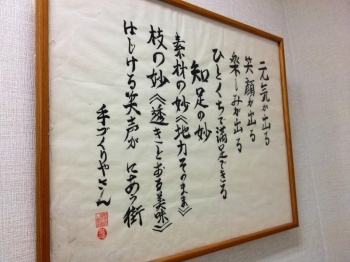 元気が出る
笑顔が出る
楽しみが出る
ひとくちで満足できる
知足の妙
素材の妙《地力そのまま》
枝の妙《透きとおる美味》
はじける笑声が にあう街
手づくりやさん